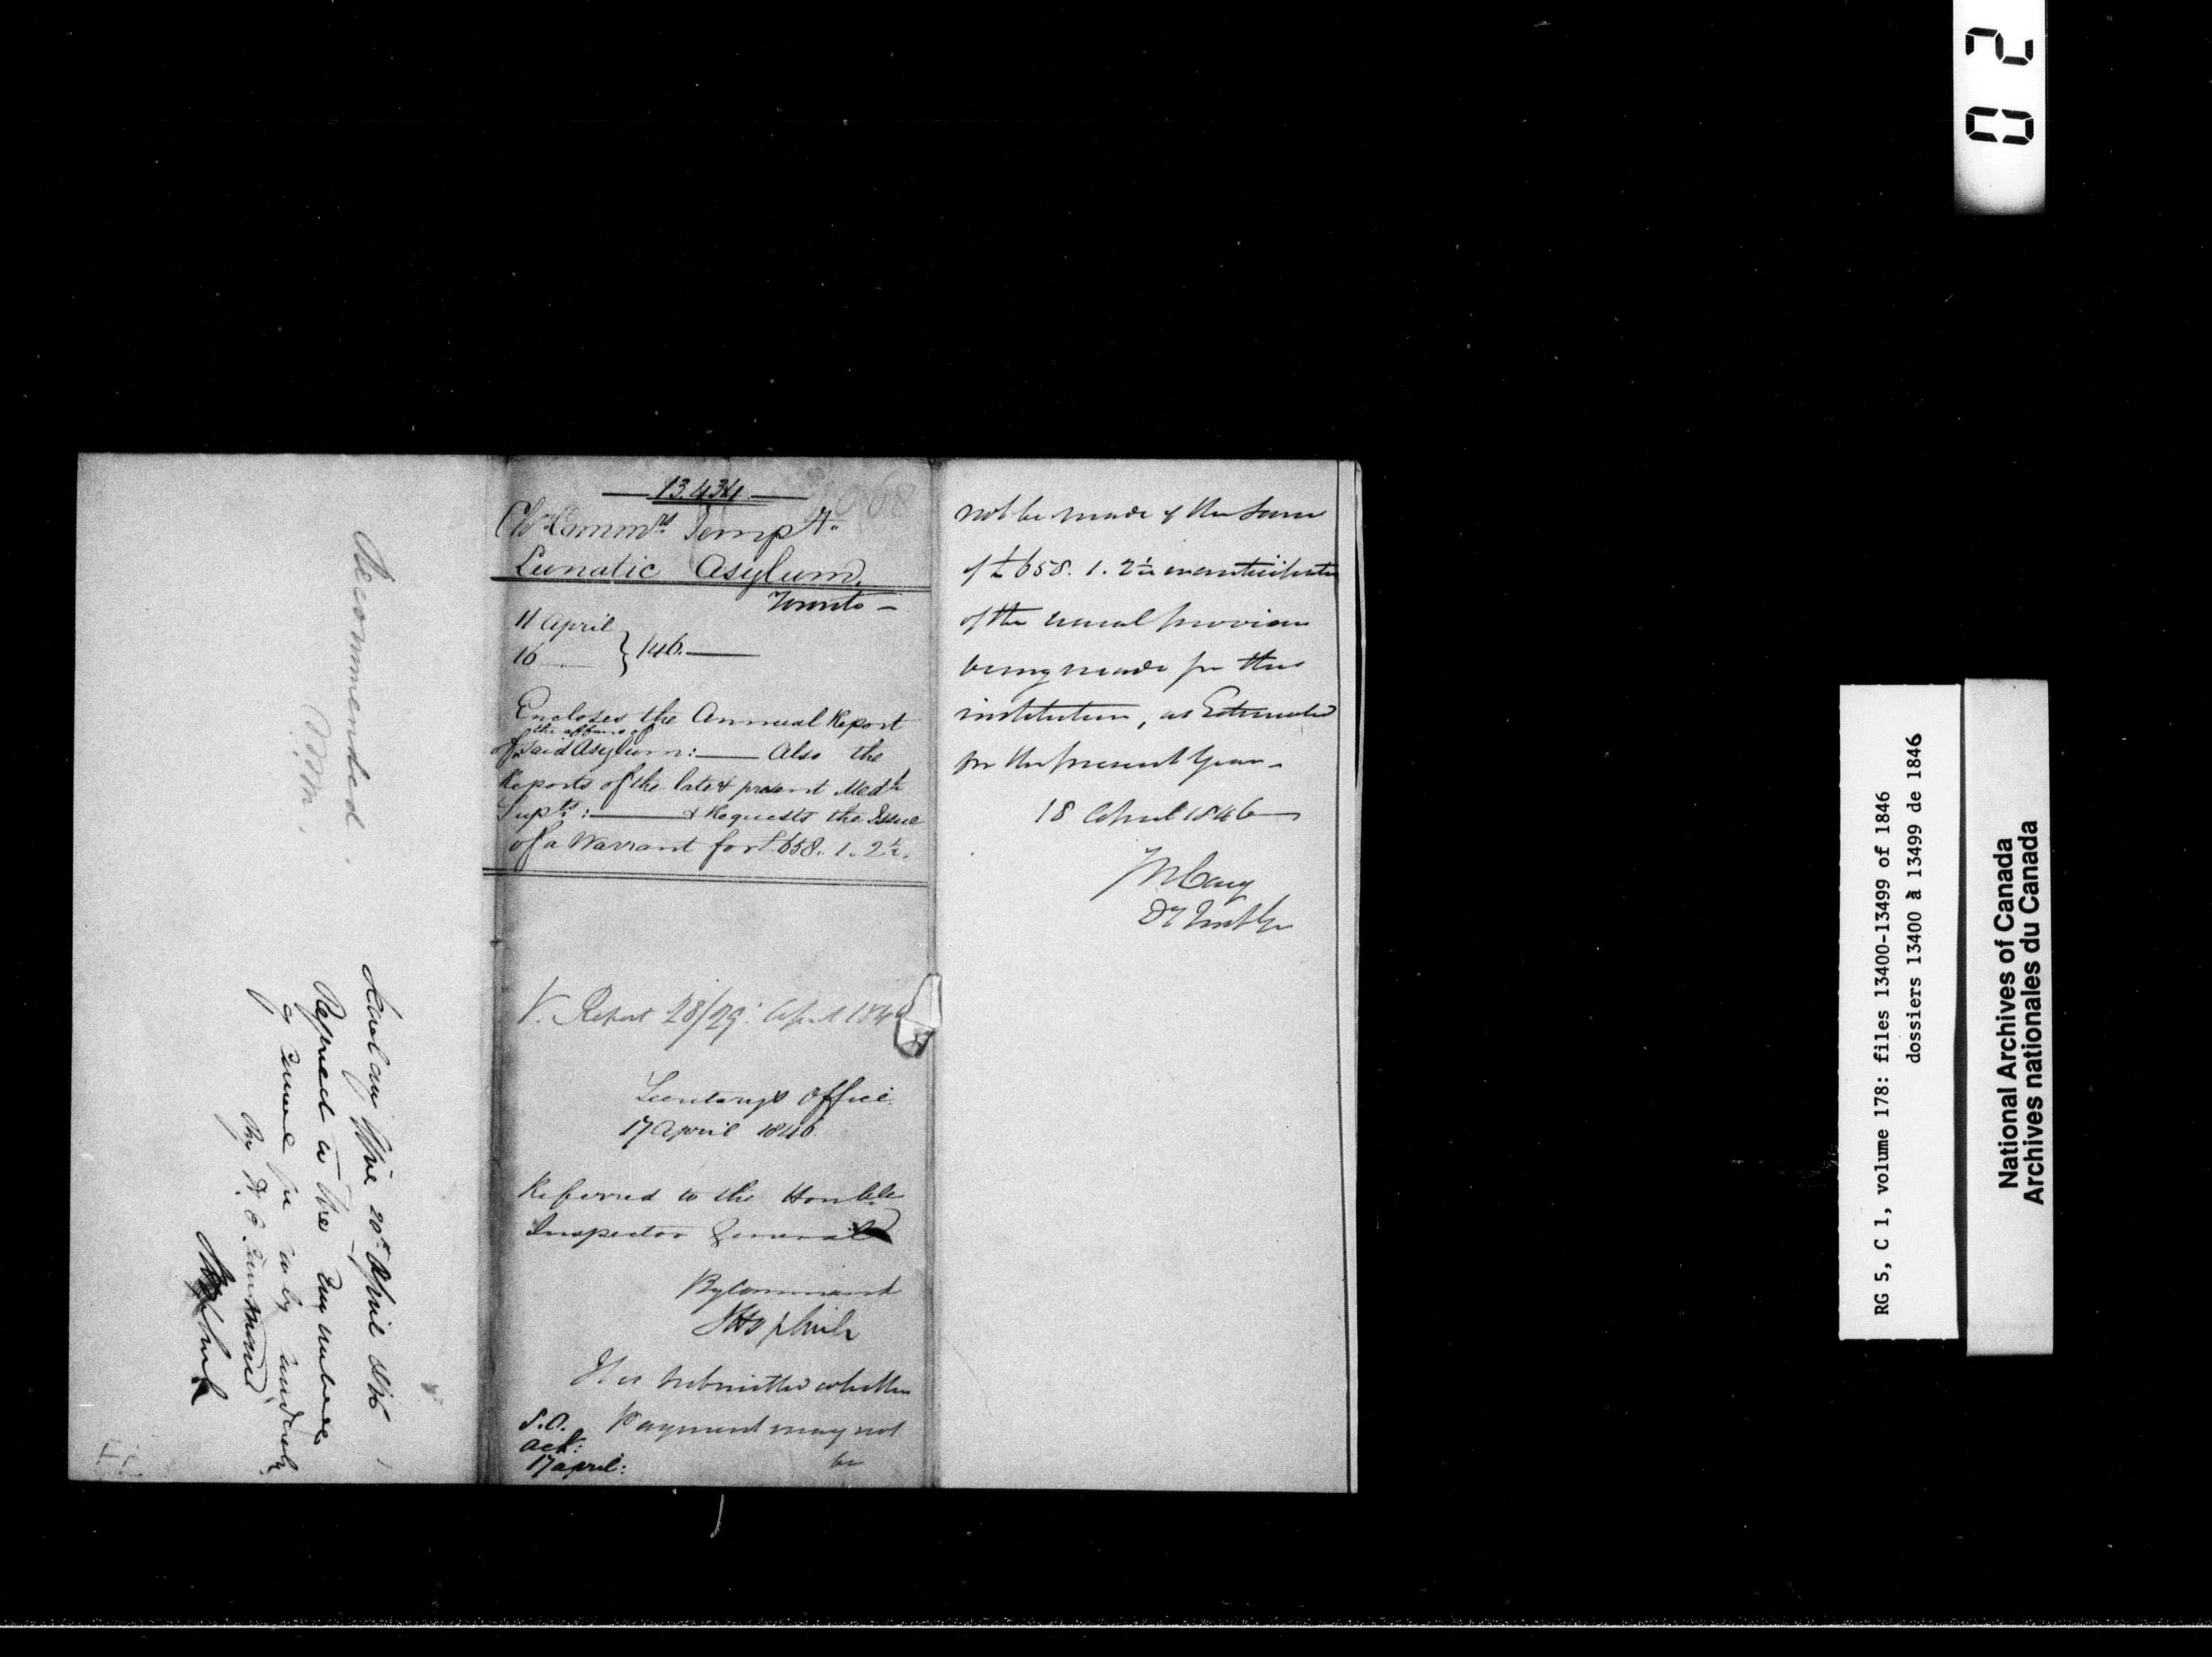 13.434
Ch. Commrs. Tempy.
Lunatic Asylum,
Toronto –
11 April
16 } /46.
Encloses the Annual Report
of the affairs of
said Asylum: — Also the
Reports of the late & present Medl
Supts: — & Requests the Issue
of a Warrant for £658. 1. 2½.
V. Report 28/29 April 1846
Secretary's Office
17 April 1846
Referred to the Honble
Inspector General
By Command
It is submitted whether
Payment may not
be
S.O.
ack:
17 april:
not be made of the Sum
of £658. 1. 2½ in anticipation
of the usual provision
being made for this
institution, as Estimated
for the present Year –
18 April 1846
Recommended.
20th April 1846
Referred to the
02
RG 5, C 1, volume 178: files 13400-13499 of 1846
dossiers 13400 à 13499 de 1846
National Archives of Canada
Archives nationales du Canada